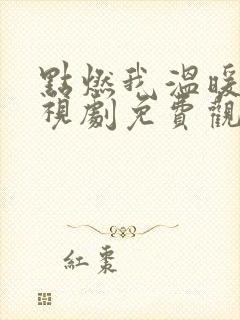 點燃我溫暖
視劇免費觀
紅棗